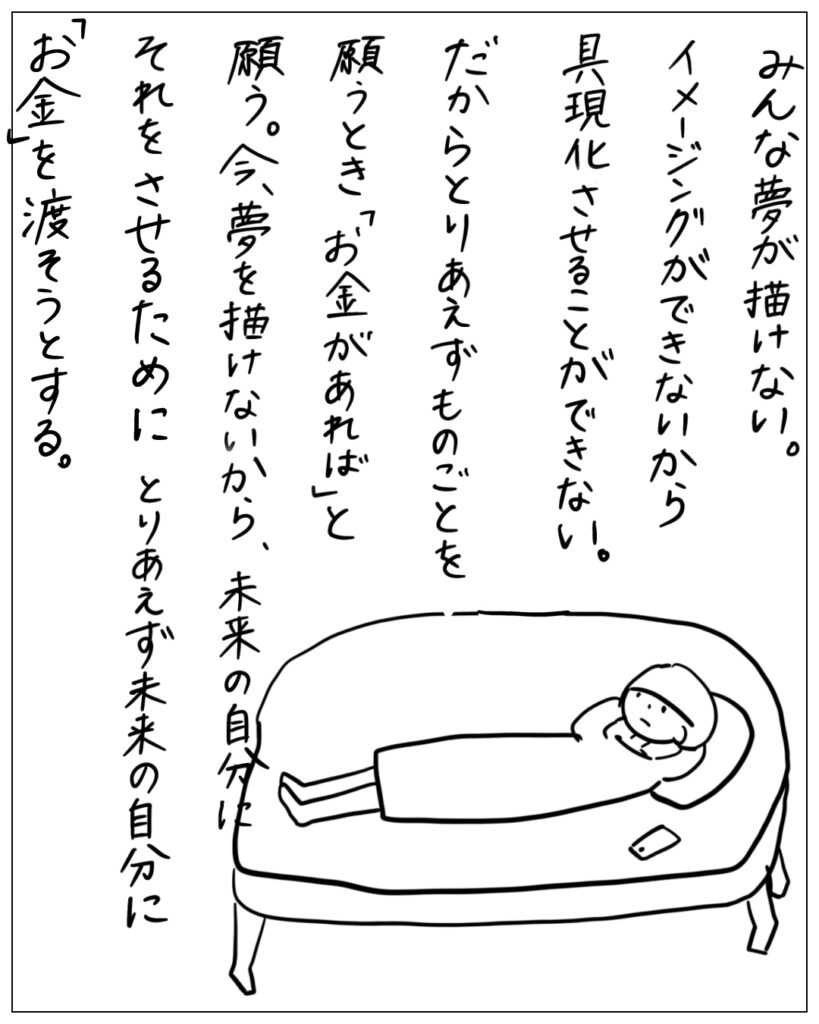 みんな夢が描けない。
イメージングができないから
具現化させることができない。
だからとりあえずものごとを
願うとき「お金があれば」と
願う。今、夢を描けないから、未来の自分に
それをさせるために とりあえず未来の自分に
「お金」を渡そうとする。